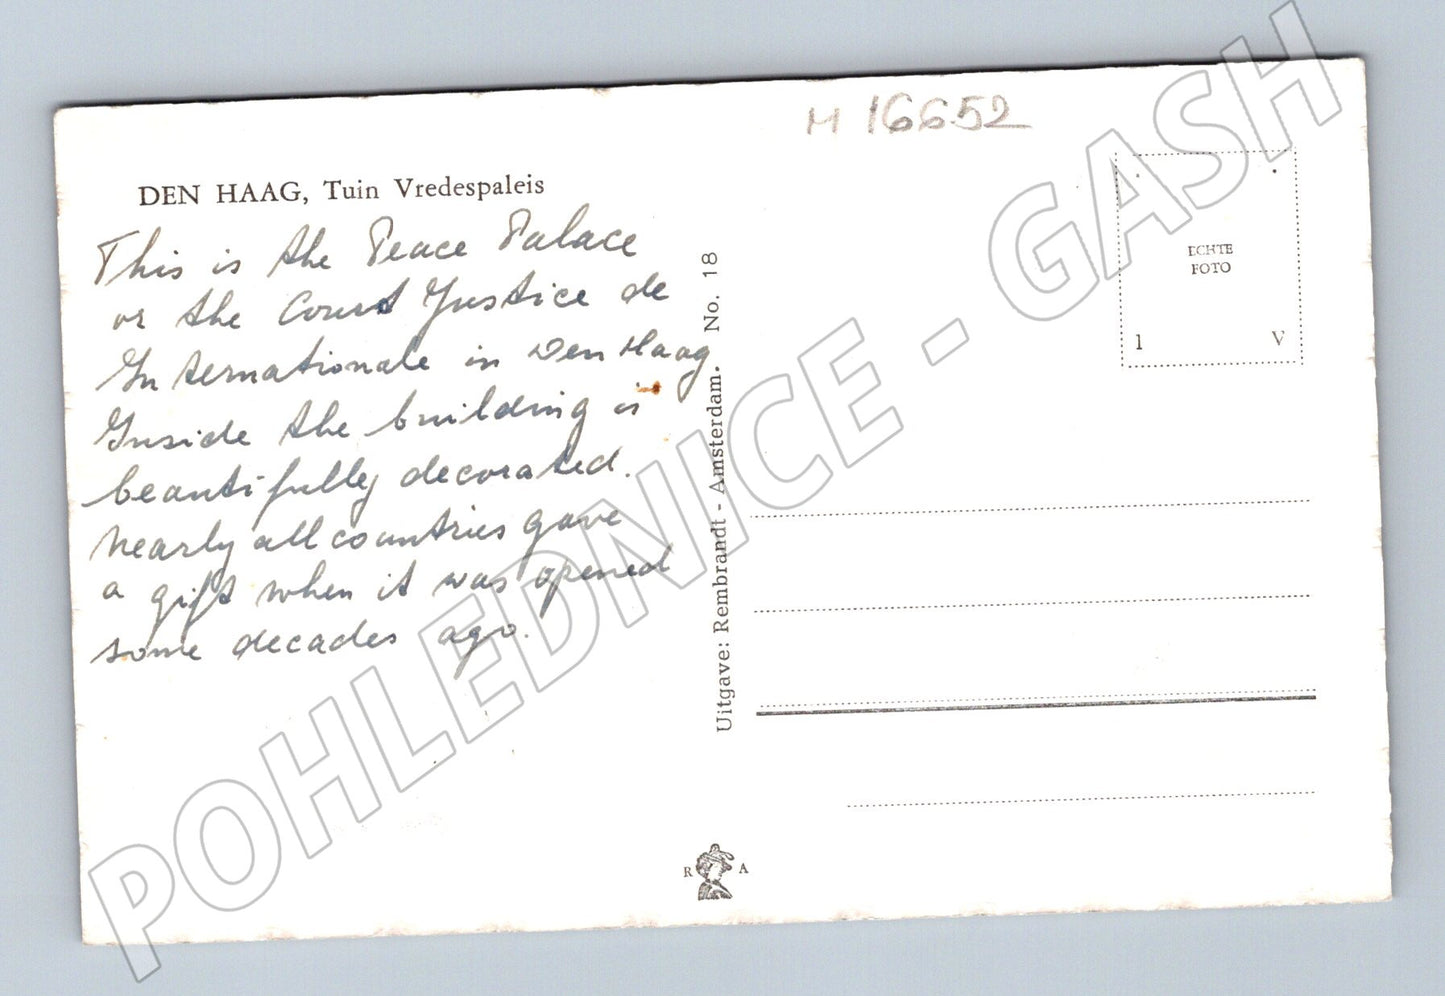 M 16652
DEN HAAG, Tuin Vredespaleis
This is the Peace Palace
or the Court Justice de
Internationale in Den Haag
Inside the building is
beautifully decorated.
Nearly all countries gave
a gift when it was opened
some decades ago.
Uitgave: Rembrandt - Amsterdam. No. 18
ECHTE
FOTO
1 V
R A
POHLEDNICE - GASH